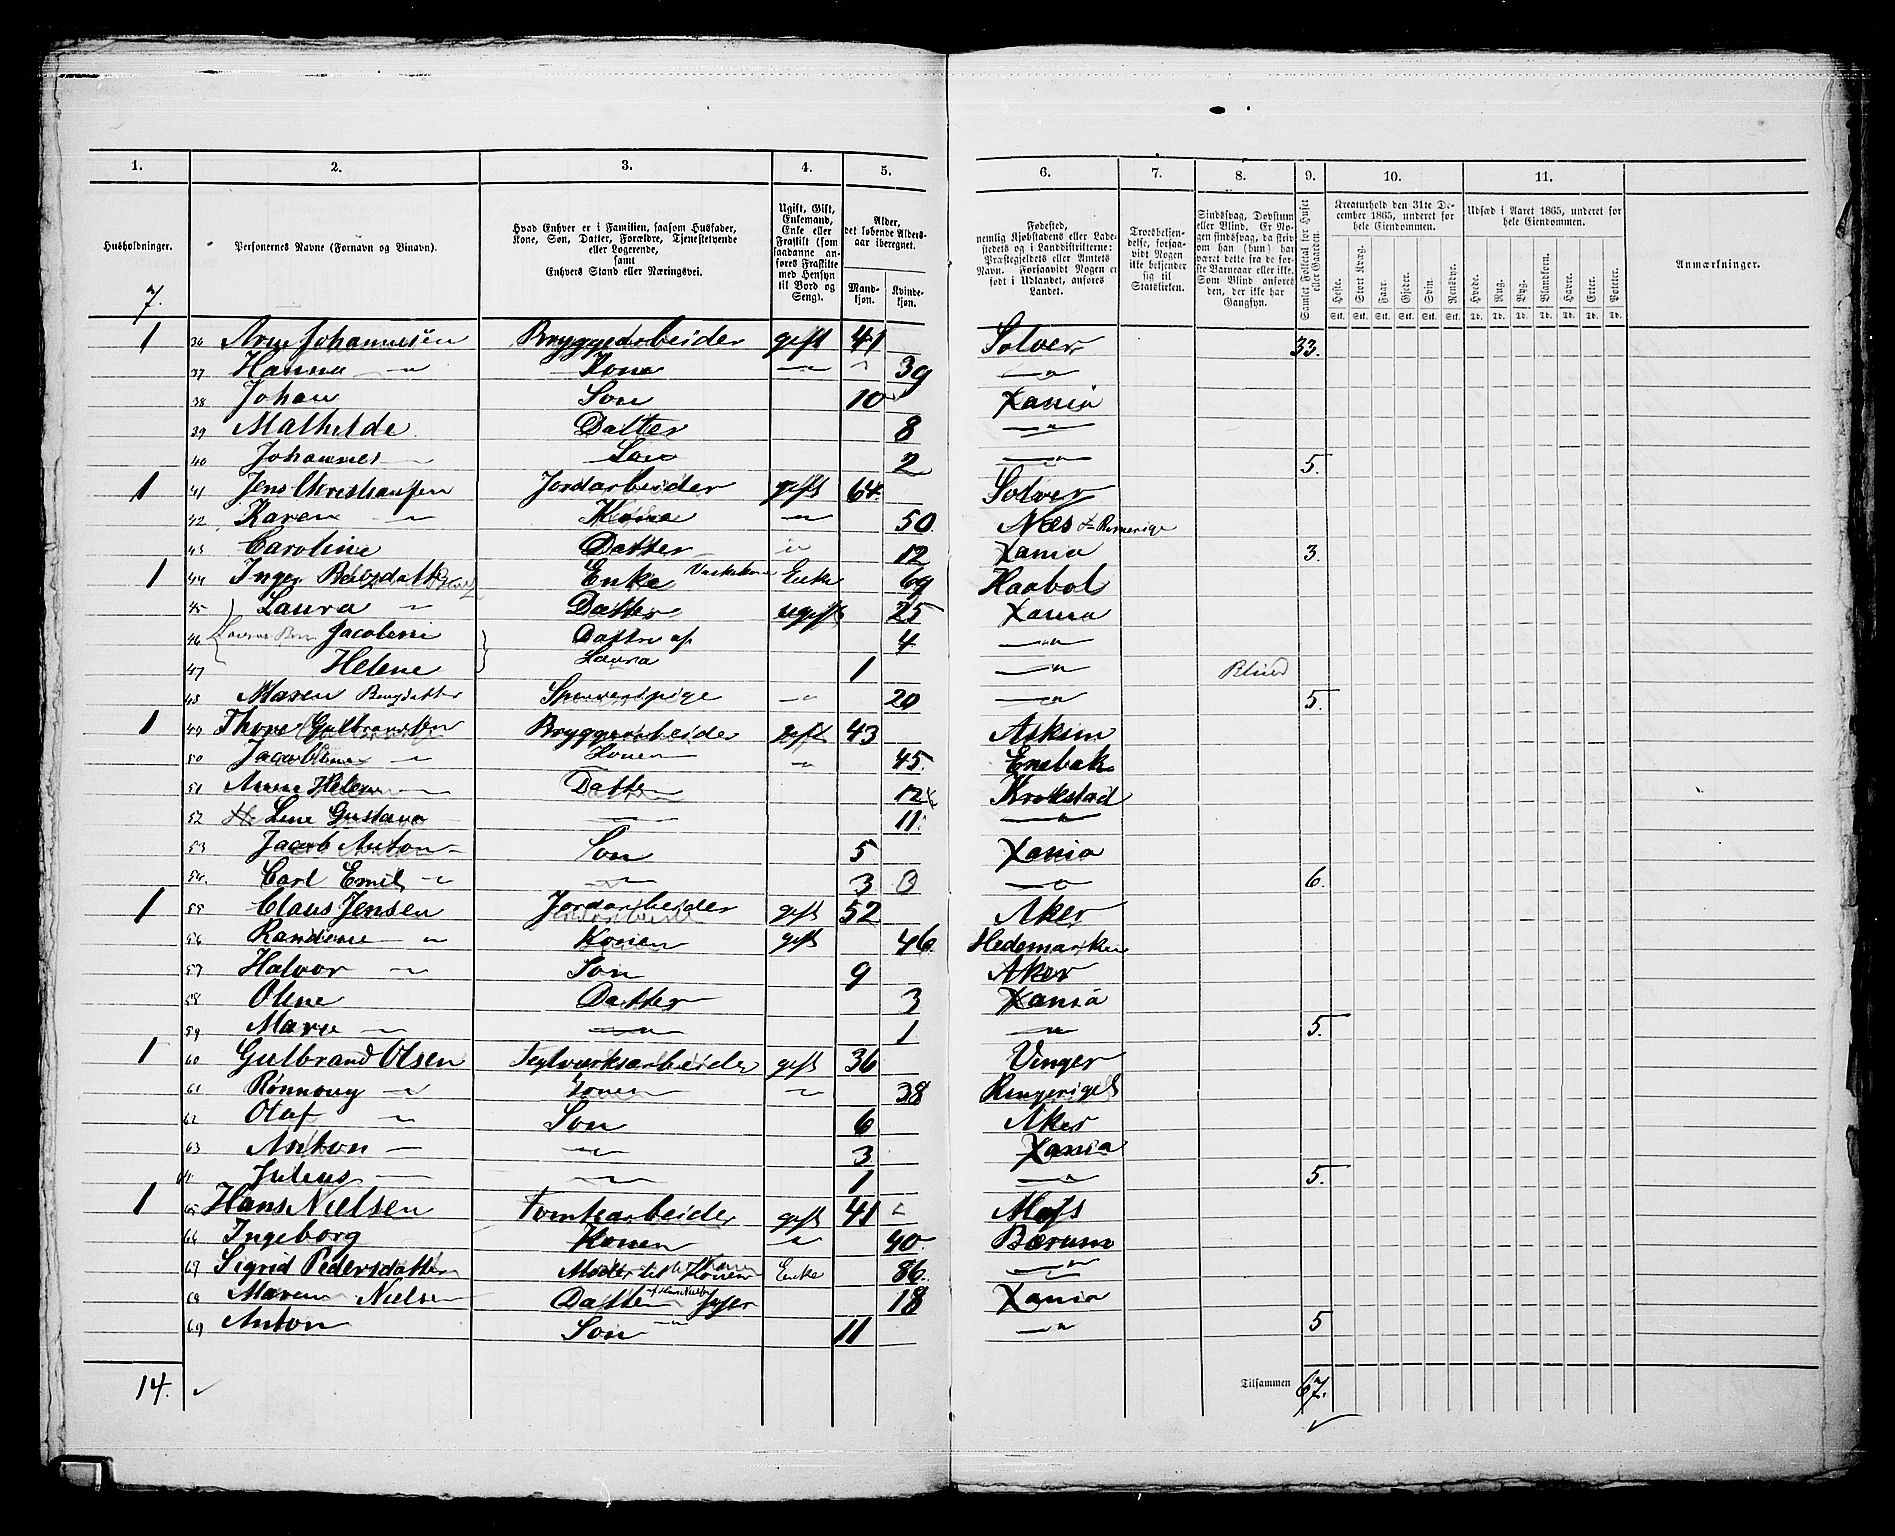 1. 2. 3. 4. 5. 6. 7. 8. 9. 10. 11.
Husholdninger.
Personernes Navne (Fornavn og Tilnavn).
Hvad Enhver er i Familien, saasom Husfader, Kone, Søn, Datter, Forældre, Tjenestetyende eller Logerende, samt Enhvers Stand eller Næringsvei.
Ugift, Gift, Enkemand, Enke eller Fraskilt (som saadanne anføres Fraskilte med Hensyn til Bord og Seng).
Alder, det løbende Aldersaar iberegnet.
Mandkjøn. Kvindekjøn.
Fødested, nemlig Kjøbstedens eller Ladestedets og i Landdistrikterne: Præstegjeldets eller Amtets Navn. Forsaavidt Nogen er født i Udlandet, anføres Landet.
Troesbekjendelse, forsaavidt Nogen ikke bekjender sig til Statskirken.
Sindssvag, Døvstum eller Blind. Er Nogen sindssvag, da skrives om han (hun) har været dette fra de første Barneaar eller ikke. Som Blind anføres den, der ikke har Gangsyn.
Samlet Folketal for Huset eller Gaarden.
Kreaturhold den 31te December 1865, underet for hele Eiendommen.
Heste. Stort Kvæg. Faar. Gjeder. Svin. Rensdyr.
Stk. Stk. Stk. Stk. Stk. Stk.
Udsæd i Aaret 1865, underet for hele Eiendommen.
Hvede. Rug. Byg. Blandkorn. Havre. Erter. Poteter.
Td. Td. Td. Td. Td. Td. Td.
Anmærkninger.
7.
1 36 Arne Johannesen Bryggearbeider gift 41 Solver 33.
37 Hanna — " Kone — " 39 — "
38 Johan Søn 10 Xania
39 Mathilde Datter 8 — "
40 Johannes — Søn 2 — " 5.
1 41 Jens Christiansen Jordarbeider gift 64. Solver
42 Karen — " Kone — " 50. Næs Romerige
43 Caroline Datter " 12 Xania 3.
1 44 Inger Enke Vaskekone Enke 69 Haabøl
45 Laura " Datter ugift 25 Xania
46 Lauras Børn Jacobine Datter af 4 — "
47 Helene Laura 1 — " Blind
48 Maren Bengsdatter pige — " 20 — " 5.
1 49 Thore Gulbrandsen Bryggearbeider gift 43 Askim
50 Jacobine — " Konen — " 45. Enebak
51 Anne Helene — Datter 12 Krokstad
52 Lene Gustava — 11. — "
53 Jacob Anton — Søn 5 Xania
54. Carl Emil " — " 3 3 — " 6.
1 55 Claus Jensen Jordarbeider gift 52 Aker
56 Randine — " Konen gift 46. Hedemarken
57 Halvor — " Søn 9 Aker
58 Oline Datter 3 Xania
59 Marie — " — " 1 — " 5.
1 60 Gulbrand Olsen Teglværksarbeider gift 36 Vinger
61 Rønnoug — " Konen — " 38 Ringerige
62 Olaf — " Søn 6 Aker
63 Anton — " — " 3 Xania
64 Julius — — " 1 — " 5.
1 65 Hans Nielsen Tomtearbeider gift 41 " Moss
66 Ingeborg Konen " 40. Bærum
67 Sigrid Pedersdatter Moder til Konen Enke 86. — "
68 Maren Nielsen Datter 18 Xania
69 Anton Søn — " 11 — " 5
14.
Tilsammen 67.